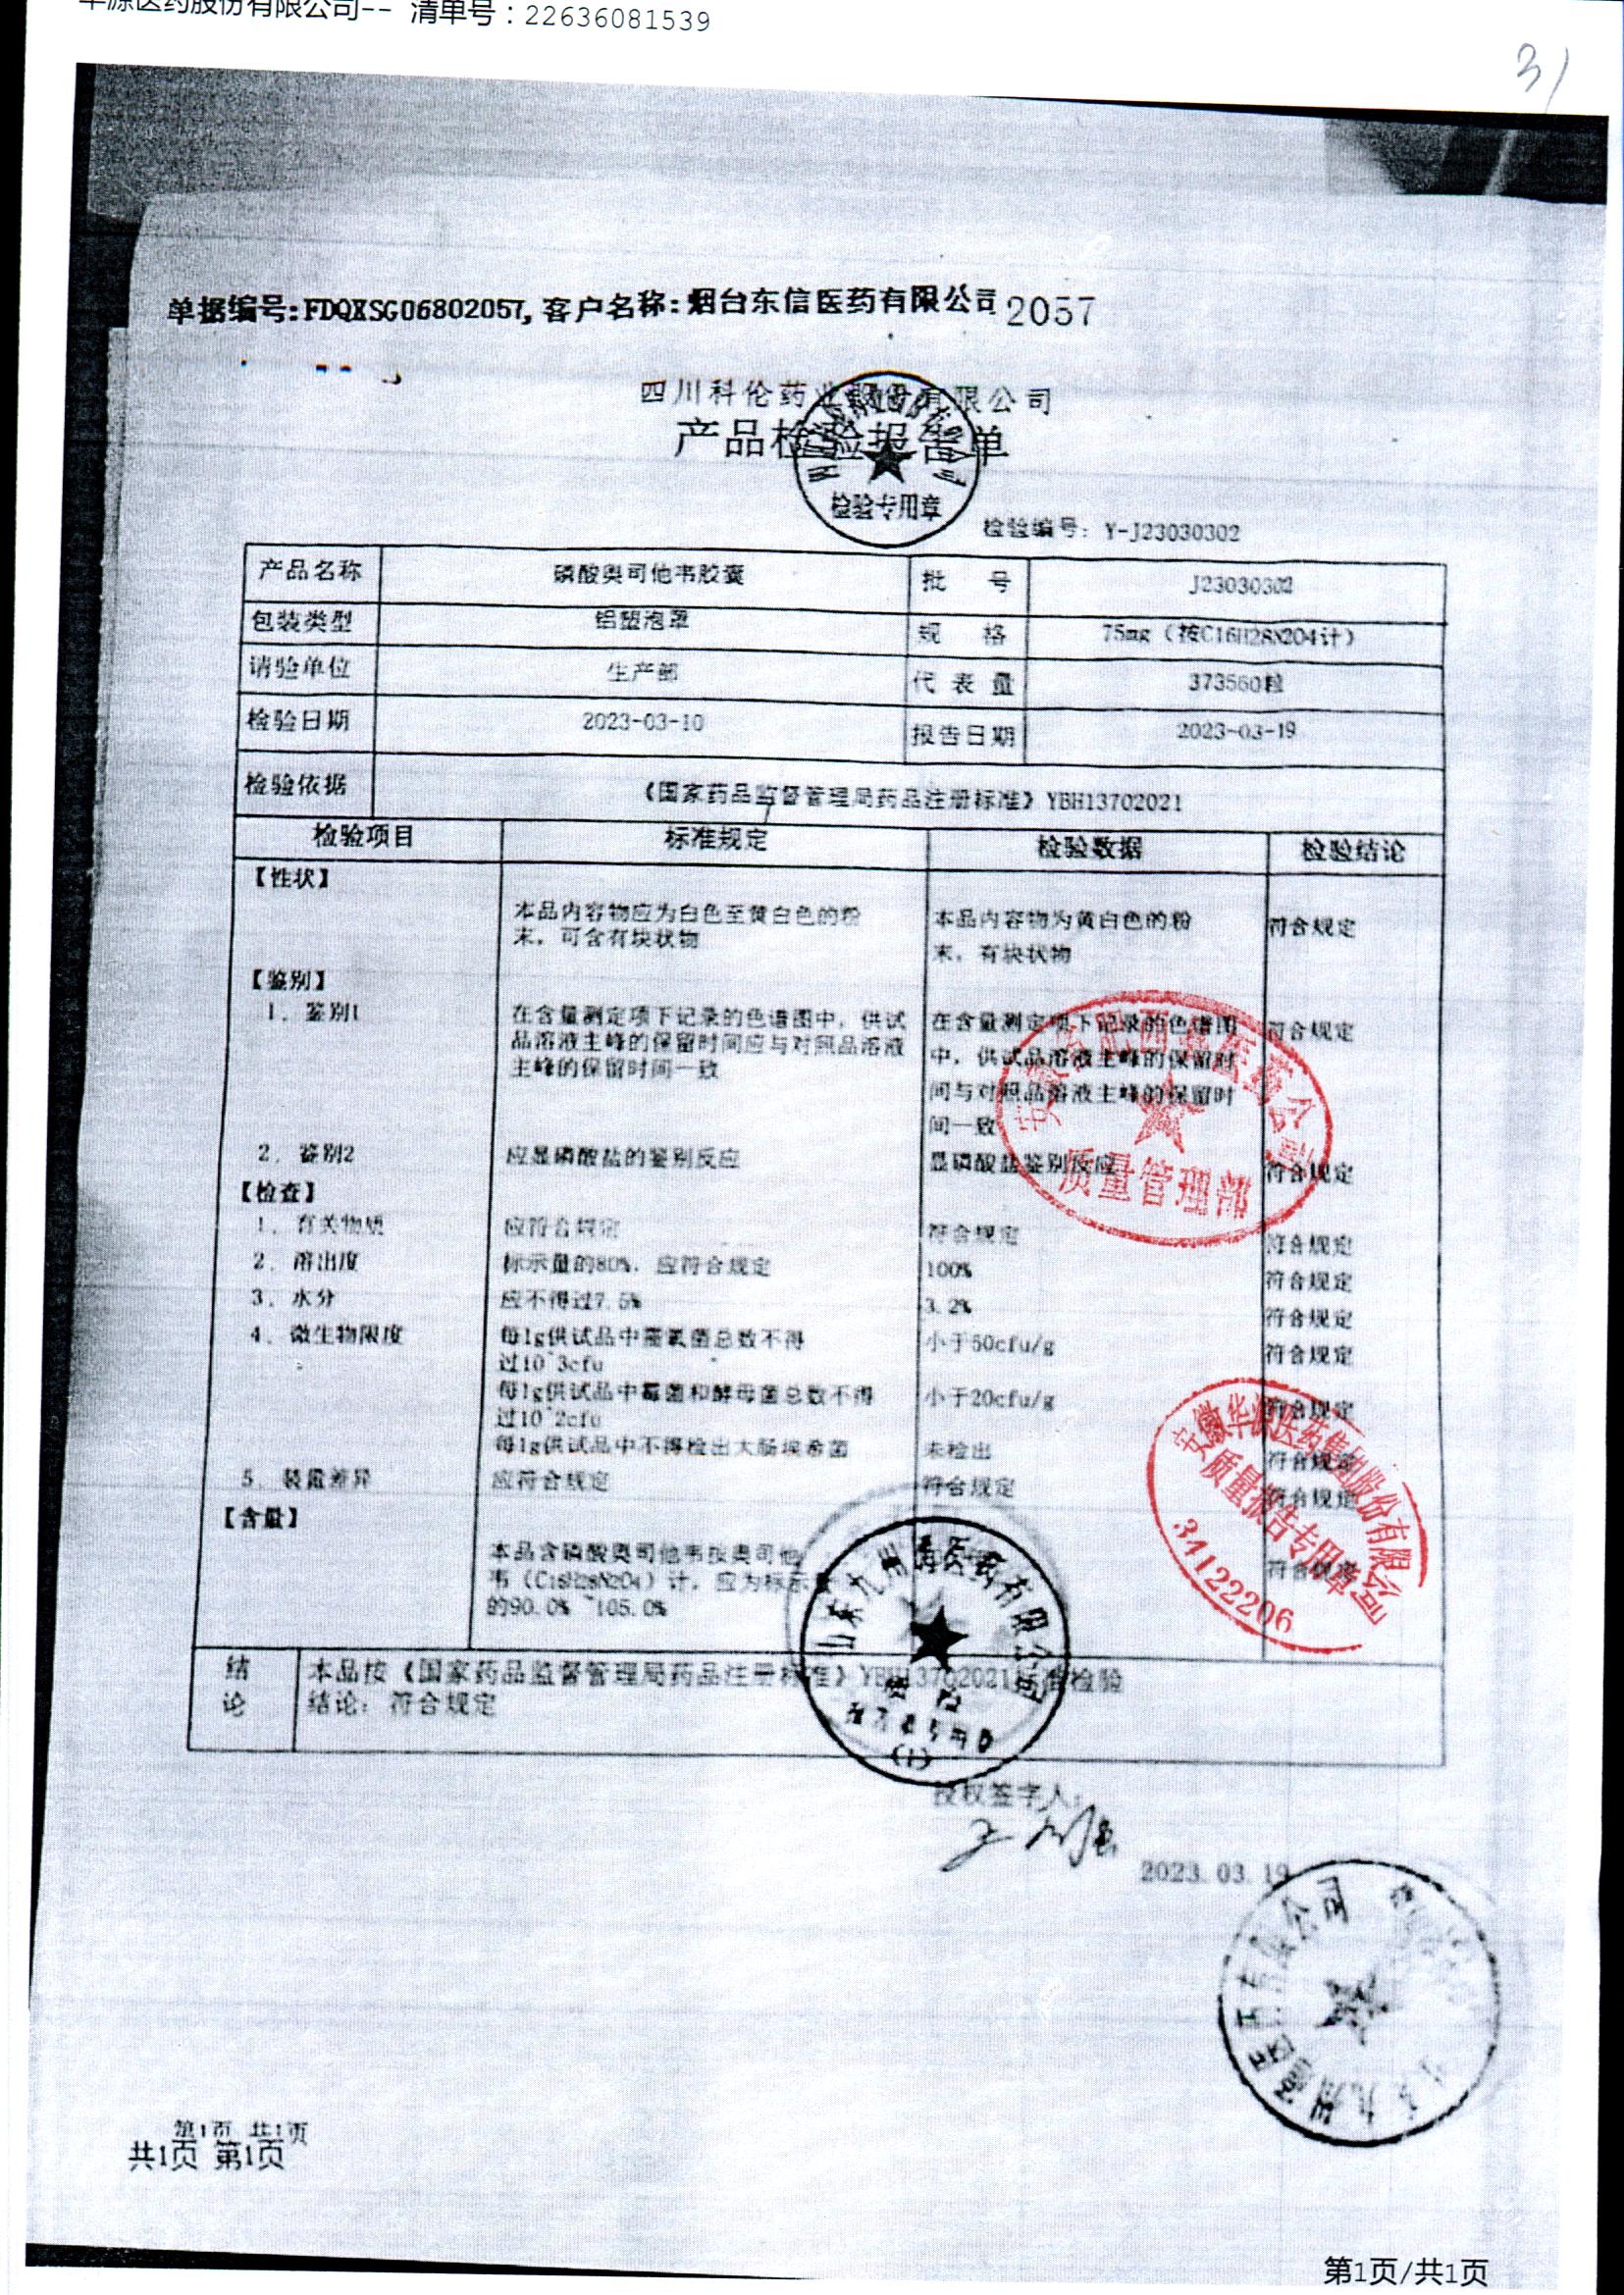 华源医药股份有限公司-- 清单号：22636081539
31
单据编号:FDQXSG06802057, 客户名称: 烟台东信医药有限公司 2057
四川科伦药业股份有限公司
产品检验报告单
检验专用章
检验编号: Y-J23030302
产品名称 磷酸奥司他韦胶囊 批 号 J23030302
包装类型 铝塑泡罩 规 格 75mg（按C16H28N2O4计）
请验单位 生产部 代 表 量 373560粒
检验日期 2023-03-10 报告日期 2023-03-19
检验依据 《国家药品监督管理局药品注册标准》YBH13702021
检验项目 标准规定 检验数据 检验结论
【性状】
本品内容物应为白色至黄白色的粉 本品内容物为黄白色的粉 符合规定
末，可含有块状物 末，有块状物
【鉴别】
1、鉴别1 在含量测定项下记录的色谱图中，供试 在含量测定项下记录的色谱图 符合规定
品溶液主峰的保留时间应与对照品溶液 中，供试品溶液主峰的保留时
主峰的保留时间一致 间与对照品溶液主峰的保留时
间一致
2、鉴别2 应显磷酸盐的鉴别反应 显磷酸盐鉴别反应 符合规定
质量管理部
【检查】
1、有关物质 应符合规定 符合规定 符合规定
2、溶出度 标示量的80%，应符合规定 100% 符合规定
3、水分 应不得过7.5% 3.2% 符合规定
4、微生物限度 每1g供试品中需氧菌总数不得 小于50cfu/g 符合规定
过10^3cfu
每1g供试品中霉菌和酵母菌总数不得 小于20cfu/g 符合规定
过10^2cfu
每1g供试品中不得检出大肠埃希菌 未检出 符合规定
5、装量差异 应符合规定 符合规定 符合规定
安徽华源医药集团股份有限公司
质量报告专用章
34122206
【含量】
本品含磷酸奥司他韦按奥司他 符合规定
韦（C16H28N2O4）计，应为标示量
的90.0%~105.0%
山东九州通医药有限公司
(1)
结论 本品按《国家药品监督管理局药品注册标准》YBH13702021标准检验
结论：符合规定
授权签字人:
2023.03.19
第1页 共1页
共1页 第1页
第1页/共1页